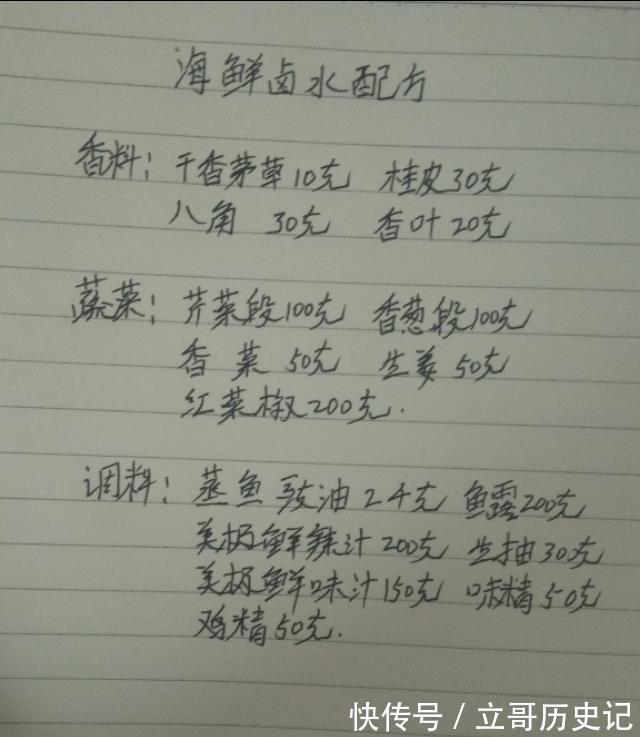 海鲜卤水配方
香料：干香茅草10克 桂皮30克
八角 30克 香叶20克
蔬菜：芹菜段100克 香葱段100克
香菜 50克 生姜 50克
红菜椒200克.
调料：蒸鱼豉油2千克 鱼露200克
美极鲜辣汁200克 生抽300克
美极鲜味汁150克 味精50克
鸡精50克.
快传号 / 立哥历史记